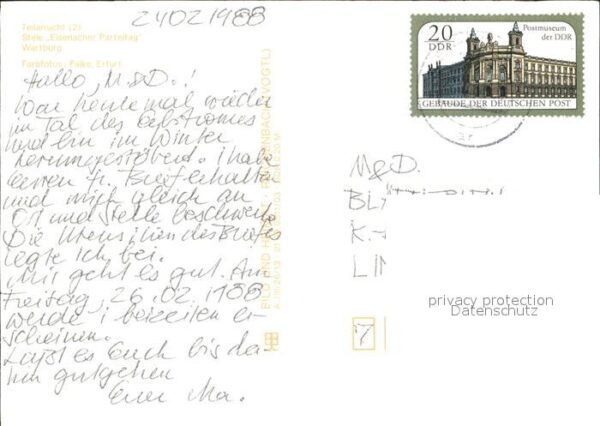 24 02 1988
Teilansicht (2)
Stele „Eisenacher Parteitag"
Wartburg
Farbfotos: Falke, Erfurt
Hallo, M&D.!
War heute mal wieder
im Tal des
und bin im Winter
herumgestöbert. i habe
Brief erhalten
und mich gleich an
Ort und Stelle beschwert.
Die Utensilien des Briefes
legte ich bei.
Mir geht es gut. Am
Freitag, 26.02.1988
werde i beizeiten er-
scheinen.
Laßt es Euch bis da-
hin gutgehen
Euer Ma.
BILD UND HEIMAT REICHENBACH (VOGTL)
20
DDR
Postmuseum
der DDR
GEBÄUDE DER DEUTSCHEN POST
M&D.
K.
privacy protection
Datenschutz
7